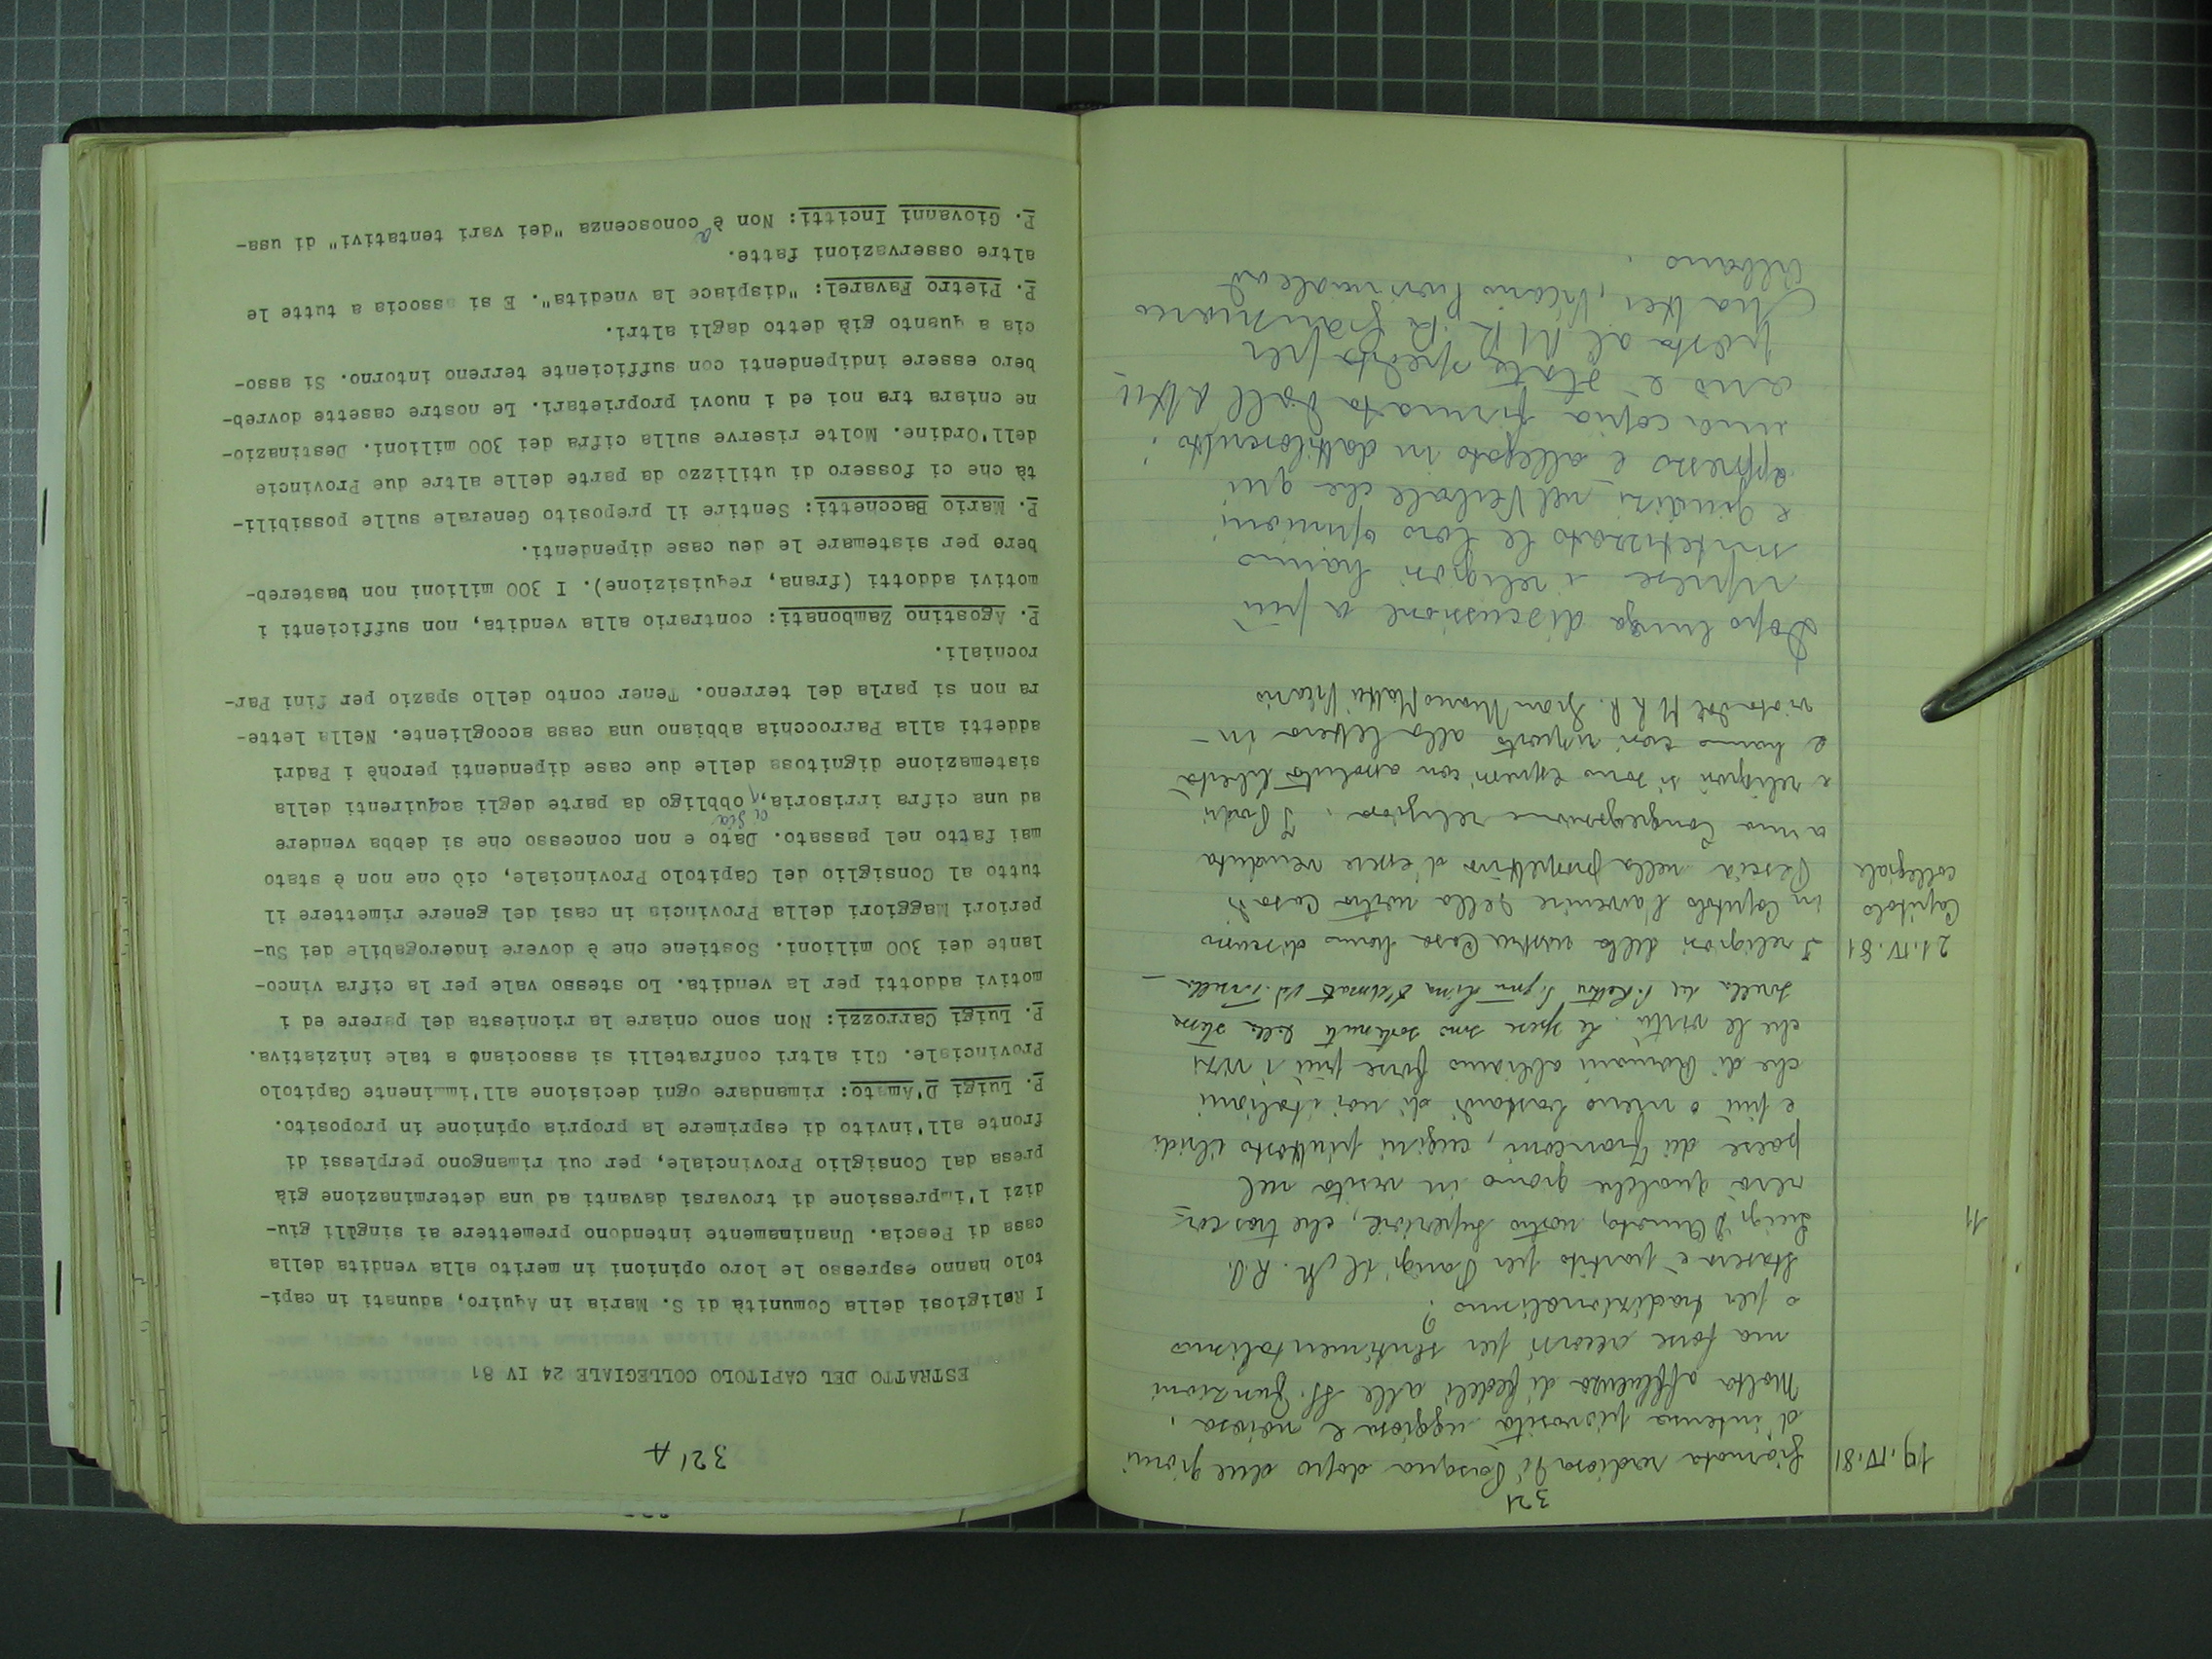 321
19.IV.81
Giornata radiosa di Pasqua dopo due giorni
d'intensa piovosità uggiosa e noiosa.
Molta affluenza di fedeli alle SS. Funzioni
ma forse accorsi per sentimentalismo
o per tradizionalismo?
11
Stasera è partito per Parigi il M. R. P.
Luigi D'Amato, nostro Superiore, che trascor=
rerà qualche giorno in visita nel
paese dei Franconi, cugini piuttosto ibridi
e più o meno bastardi di noi italiani
che di Romani abbiamo forse più i vizi
che le virtù. Le spese sono sostenute dalla stessa
sorella del P. Rettore Sig.na Lina D'Amato
21.IV.81
Capitolo
collegiale
I religiosi della nostra Casa hanno discusso
in Capitolo l'avvenire della nostra Casa di
Pescia nella prospettiva d'essere venduta
a una Congregazione religiosa. I Padri
e religiosi si sono espressi con assoluta libertà
e hanno così risposto alla lettera in-
viata dal M. R. P. Gian Marco Mattei Vicario
Dopo lunga discussione a più
riprese i religiosi hanno
sintetizzato le loro opinioni
e giudizi nel Verbale che qui
appresso è allegato in dattiloscritto;
una copia firmata dall'Att.
ario è stata spedita per
posta al M. R. P. Gian Marco
Mattei, Vicario Provinciale ad
Albano.
321 A
ESTRATTO DEL CAPITOLO COLLEGIALE 24 IV 81
I Religiosi della Comunità di S. Maria in Aquiro, adunati in capi-
tolo hanno espresso le loro opinioni in merito alla vendita della
casa di Pescia. Unanimamente intendono premettere ai singoli giu-
dizi l'impressione di trovarsi davanti ad una determinazione già
presa dal Consiglio Provinciale, per cui rimangono perplessi di
fronte all'invito di esprimere la propria opinione in proposito.
P. Luigi D'Amato: rimandare ogni decisione all'imminente Capitolo
Provinciale. Gli altri confratelli si associano a tale iniziativa.
P. Luigi Carrozzi: Non sono chiare la richiesta del parere ed i
motivi addotti per la vendita. Lo stesso vale per la cifra vinco-
lante dei 300 milioni. Sostiene che è dovere inderogabile dei Su-
periori Maggiori della Provincia in casi del genere rimettere il
tutto al Consiglio del Capitolo Provinciale, ciò che non è stato
mai fatto nel passato. Dato e non concesso che si debba vendere
ad una cifra irrisoria, ci sia obbligo da parte degli acquirenti della
sistemazione dignitosa delle due case dipendenti perchè i Padri
addetti alla Parrocchia abbiano una casa accogliente. Nella lette-
ra non si parla del terreno. Tener conto dello spazio per fini Par-
rocniali.
P. Agostino Zambonati: contrario alla vendita, non sufficienti i
motivi addotti (frana, requisizione). I 300 milioni non bastereb-
bero per sistemare le deu case dipendenti.
P. Mario Bacchetti: Sentire il preposito Generale sulle possibili-
tà che ci fossero di utilizzo da parte delle altre due Provincie
dell'Ordine. Molte riserve sulla cifra dei 300 milioni. Destinazio-
ne chiara tra noi ed i nuovi proprietari. Le nostre casette dovreb-
bero essere indipendenti con sufficiente terreno intorno. Si asso-
cia a quanto già detto dagli altri.
P. Pietro Favarel: "dispiace la vnedita". E si associa a tutte le
altre osservazioni fatte.
P. Giovanni Incitti: Non è a conoscenza "dei vari tentativi" di usa-